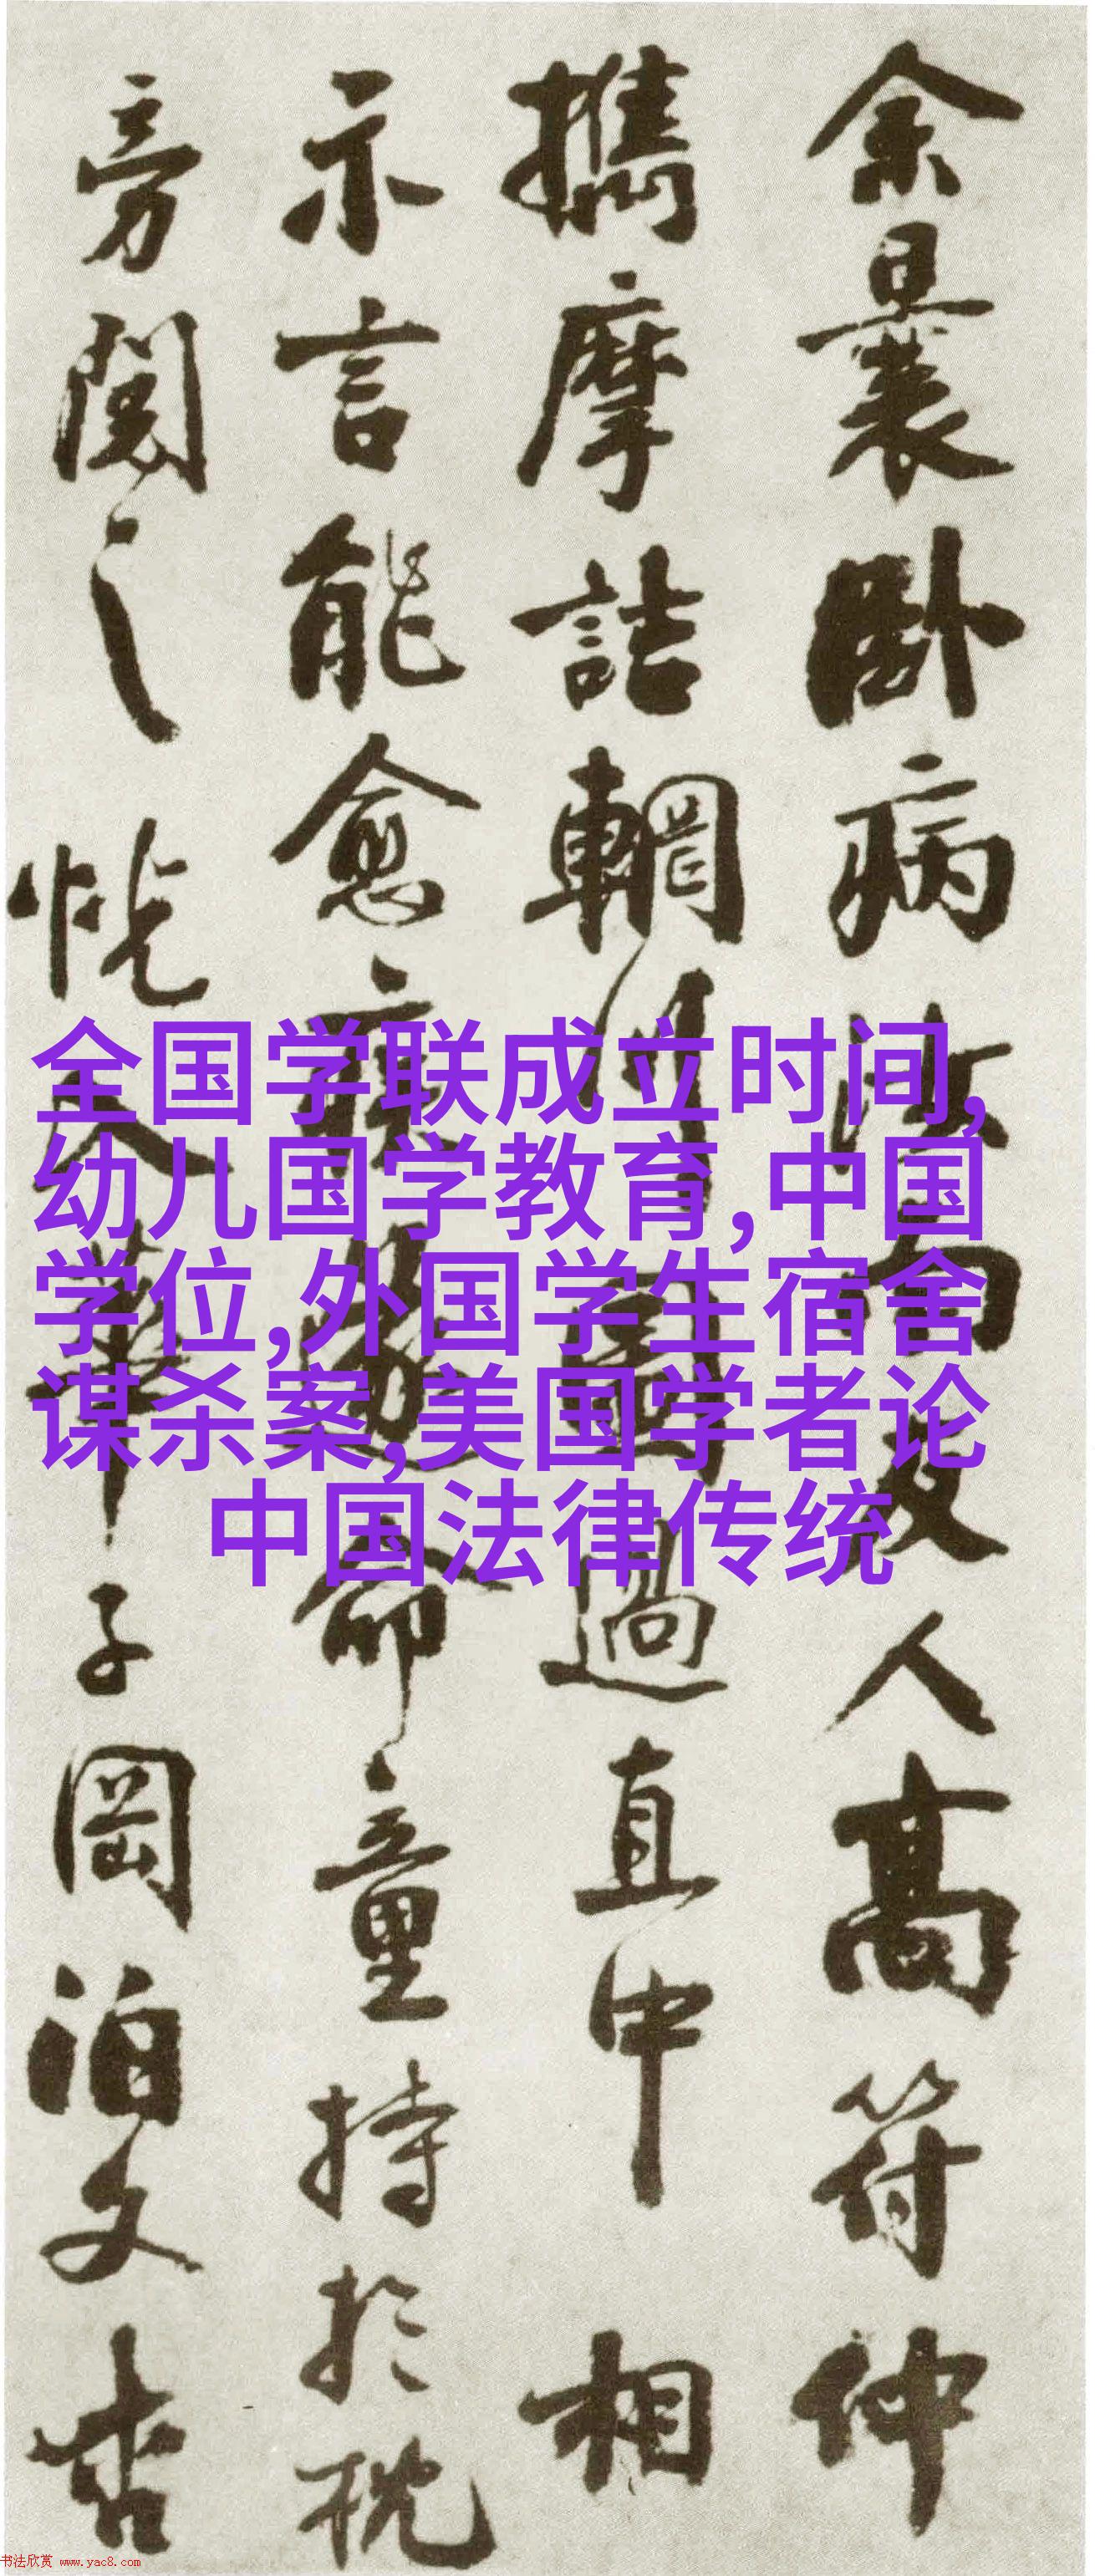 余曩卧病汝南友人高符仲
攜摩詰輞川圖過直中相
示言能愈疾遂命童持於枕
旁閱之恍入華子岡泊文杏
全国学联成立时间,
幼儿国学教育,中国
学位,外国学生宿舍
谋杀案,美国学者论
中国法律传统
书法欣赏 www.yac8.com